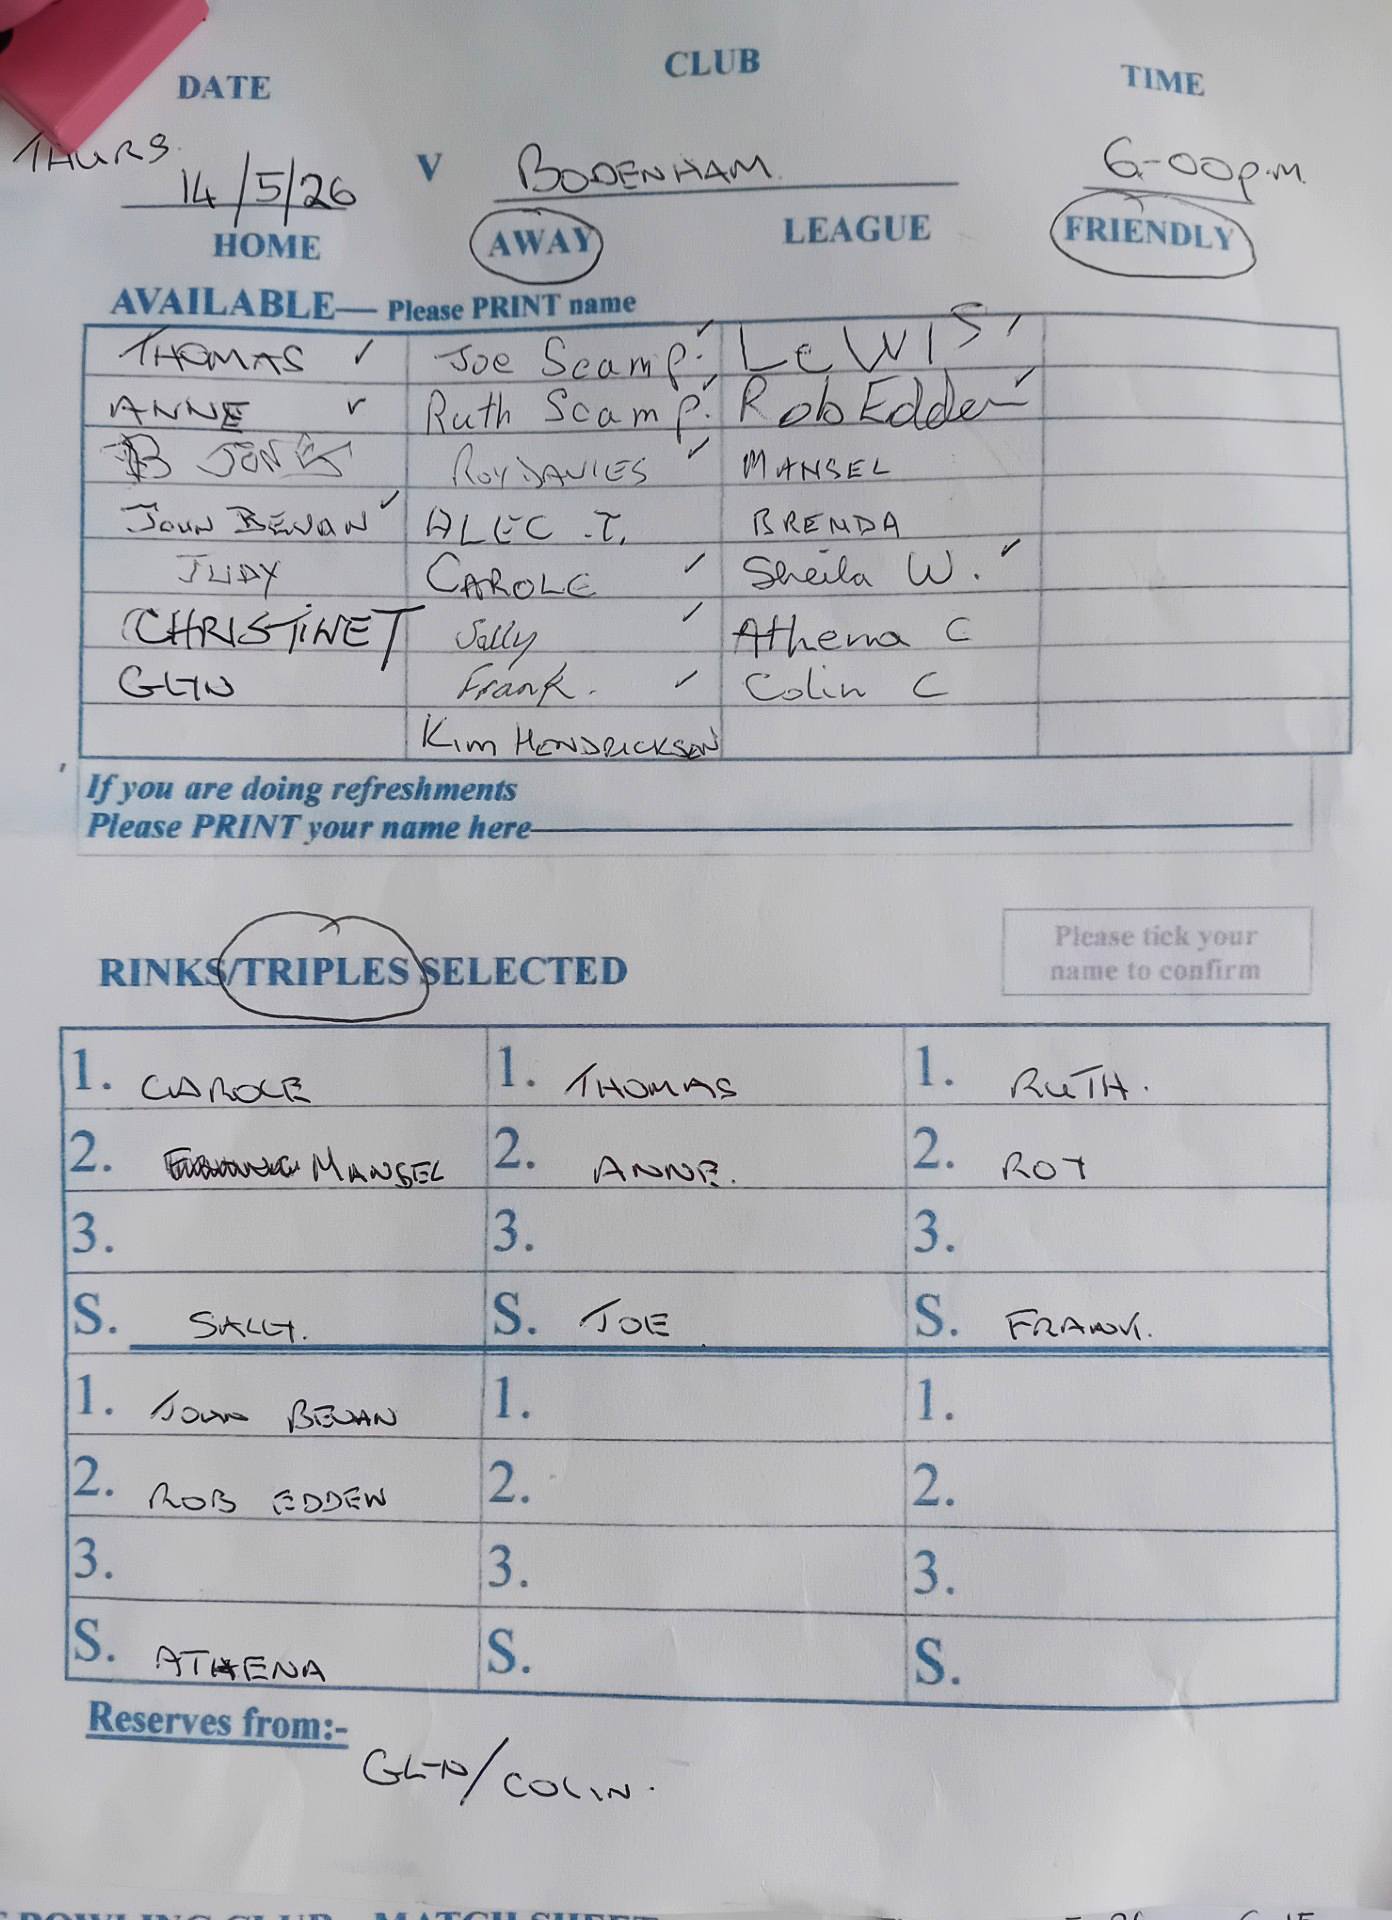 DATE CLUB TIME
THURS. 14/5/26 V BODENHAM. 6-00p.m.
HOME AWAY LEAGUE FRIENDLY
AVAILABLE— Please PRINT name
THOMAS ✓ Joe Scamp. ✓ LeWIS ✓
ANNE ✓ Ruth Scamp. ✓ Rob Edden ✓
B JONES ROY DAVIES ✓ MANSEL
JOHN BEVAN ✓ ALEC .T. BRENDA
JUDY CAROLE ✓ Sheila W. ✓
CHRISTINE T Sally ✓ Athena C
GLYN Frank. ✓ Colin C
Kim HENDRICKSON
If you are doing refreshments
Please PRINT your name here
RINKS/TRIPLES SELECTED
Please tick your
name to confirm
1. CAROLE 1. THOMAS 1. RUTH.
2. MANSEL 2. ANNE. 2. ROY
3. 3. 3.
S. SALLY. S. JOE S. FRANK.
1. JOHN BEVAN 1. 1.
2. ROB EDDEN 2. 2.
3. 3. 3.
S. ATHENA S. S.
Reserves from:-
GLYN/COLIN.
BOWLING CLUB MATCH SHEET